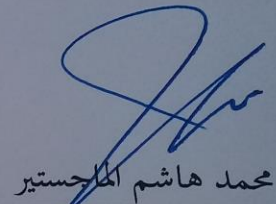 محمد هاشم الماجستير